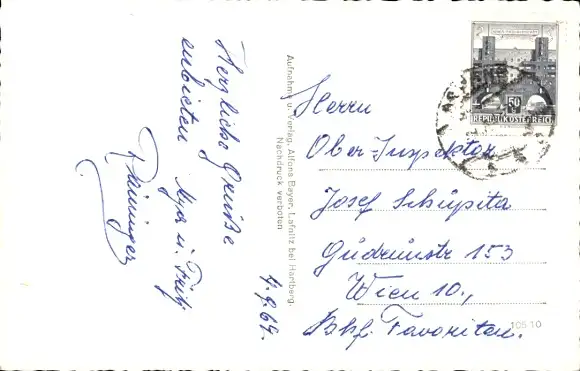 Herzliche Grüße
entbieten Mga u. Fritz
Raininger
4.9.69.
Aufnahme u. Verlag, Alfons Bayer, Lafnitz bei Hartberg.
Nachdruck verboten
50
REPUBLIK ÖSTERREICH
Herrn
Ober-Inspektor
Josef Schüpita
Gudrunstr 153
Wien 10.,
Bhf. Favoriten.
105 10